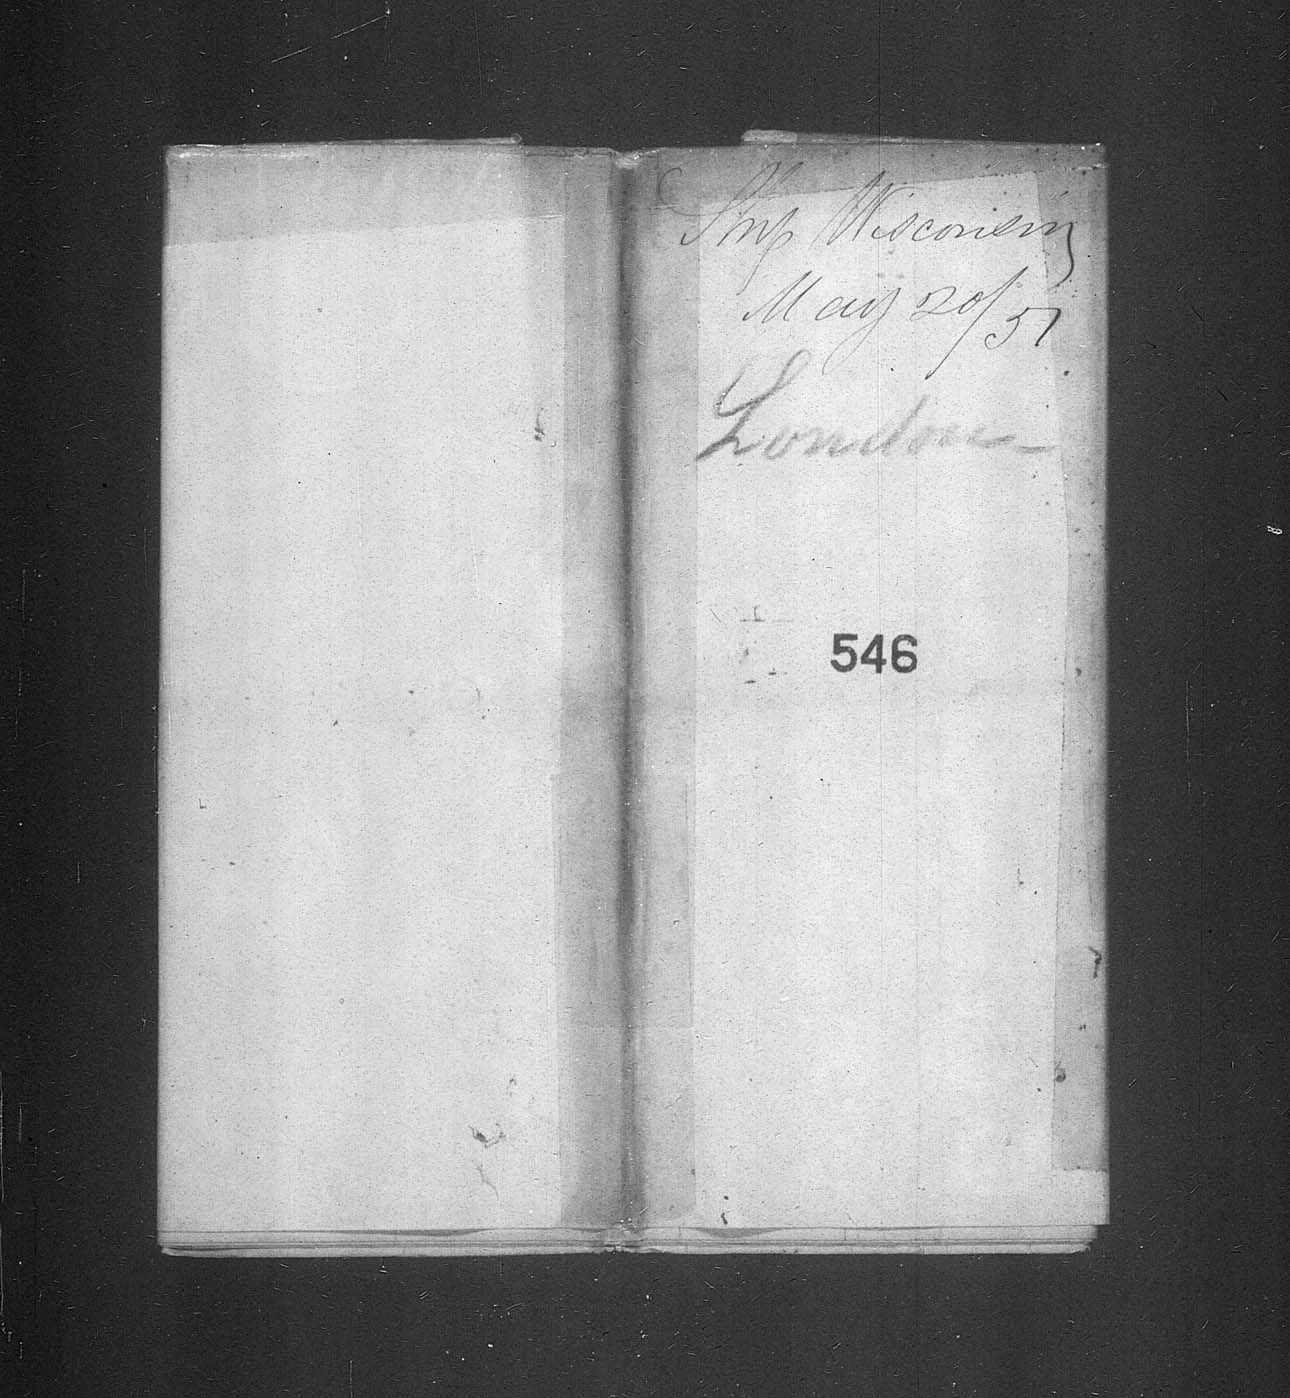 Ship Wisconsin
May 20/51
London
546